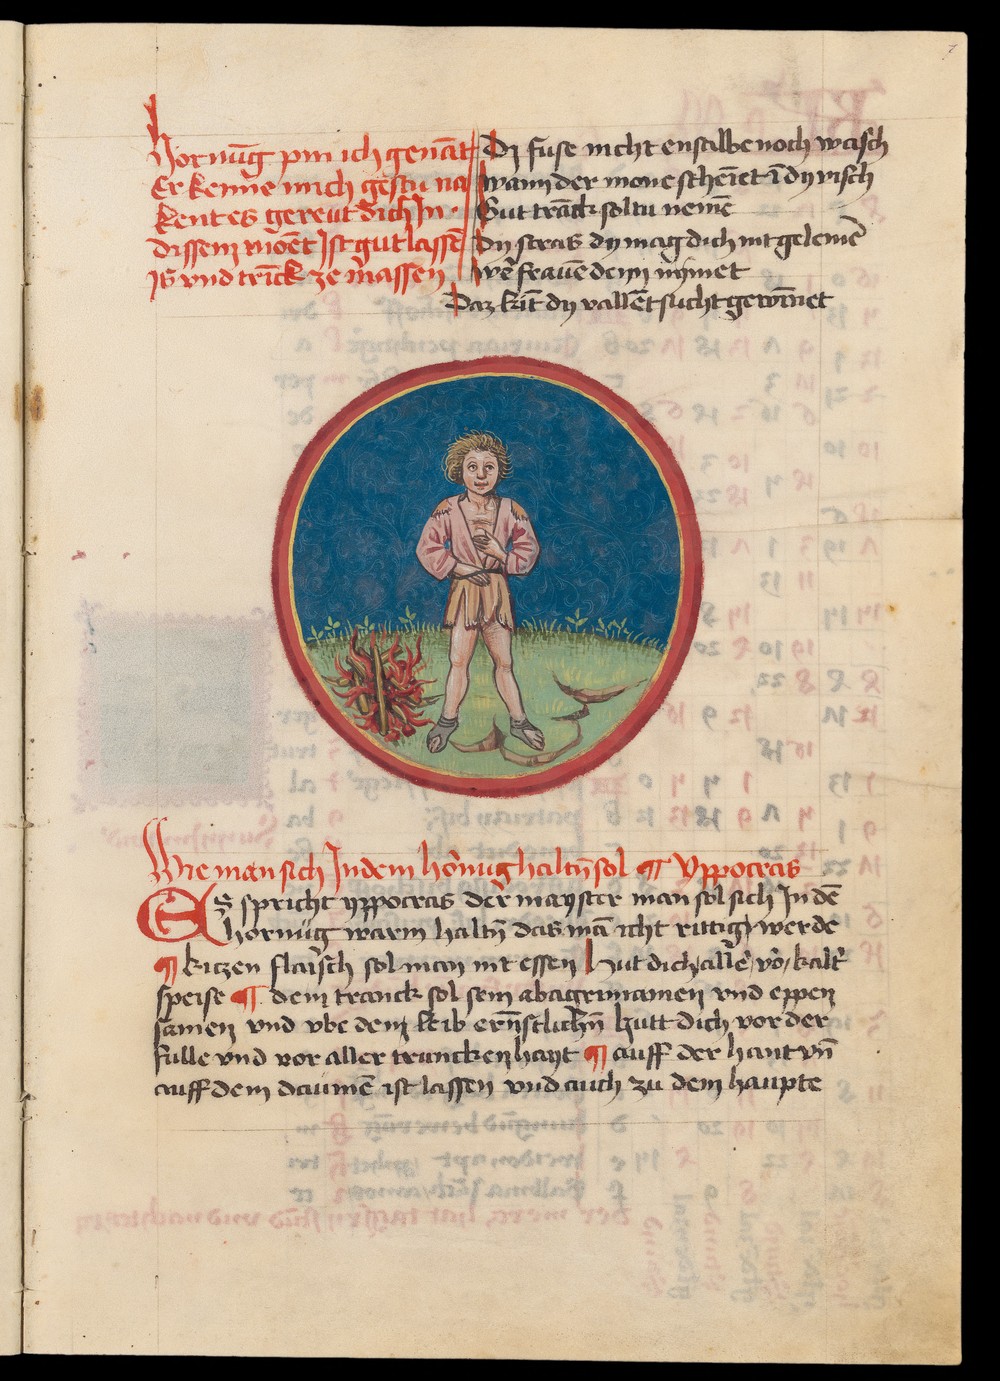 7
Hornūg pin ich genāt
Erkenne mich gestu na
kent es gereut dich In ·
dissem monet Ist gut lassē
Is vnd trīck ze massen
Dy fuse nicht ensalbe noch wasch
wann der mone scheīet ī dy visch
Gut trāck soltu nemē
Dy stras dy mag dich nit gelemē
wer frauē denn nymet
Daz kīt dy vallēt sucht gewīnet
Wie man sich In dem hornūg haltn̄ sol ¶ Yppocras
ES spricht yppocras der mayster man sol sich In dē
hornūg warm haltn̄ das mā icht rittig werde
¶ kitzen flaisch sol man nit essen Hut dich vor kalt̄
speise ¶ dein tranck sol sein abagrimamen vnd eppen
samen vnd vbe den leib ernstlichn̄ Hutt dich vor der
fulle vnd vor aller trunckenhayt ¶ auff der hant vn̄
auff dem daumē ist lassen vnd auch zu dem haupte